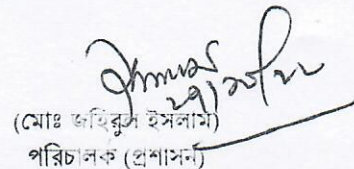 (মোঃ জহিরুল ইসলাম)
পরিচালক (প্রশাসন)